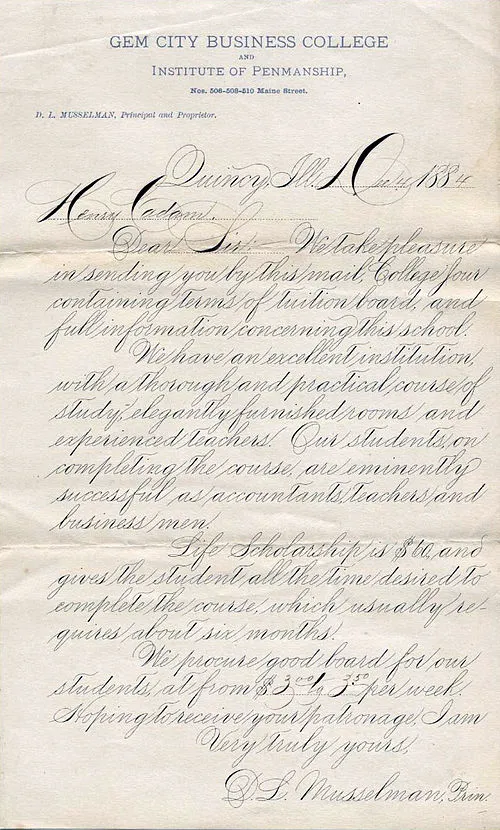 GEM CITY BUSINESS COLLEGE
AND
INSTITUTE OF PENMANSHIP,
Nos. 506-508-510 Maine Street.
D. L. MUSSELMAN, Principal and Proprietor.
Quincy, Ill. 1884
Henry Cadam.
Dear Sir:— We take pleasure
in sending you by this mail, College Jour
containing terms of tuition board, and
full information concerning this school.
We have an excellent institution,
with a thorough and practical course of
study, elegantly furnished rooms and
experienced teachers. Our students, on
completing the course, are eminently
successful as accountants, teachers, and
business men.
Life Scholarship is $60, and
gives the student all the time desired to
complete the course, which usually re-
quires about six months.
We procure good board for our
students, at from $3.00 to 3.50 per week.
Hoping to receive your patronage, I am
Very truly yours,
D. L. Musselman, Prin.